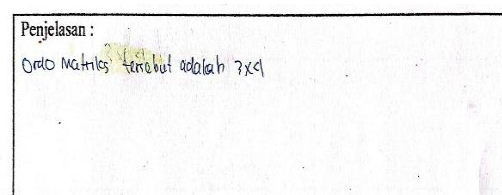 Penjelasan :
Ordo Matriks tersebut adalah 3x4